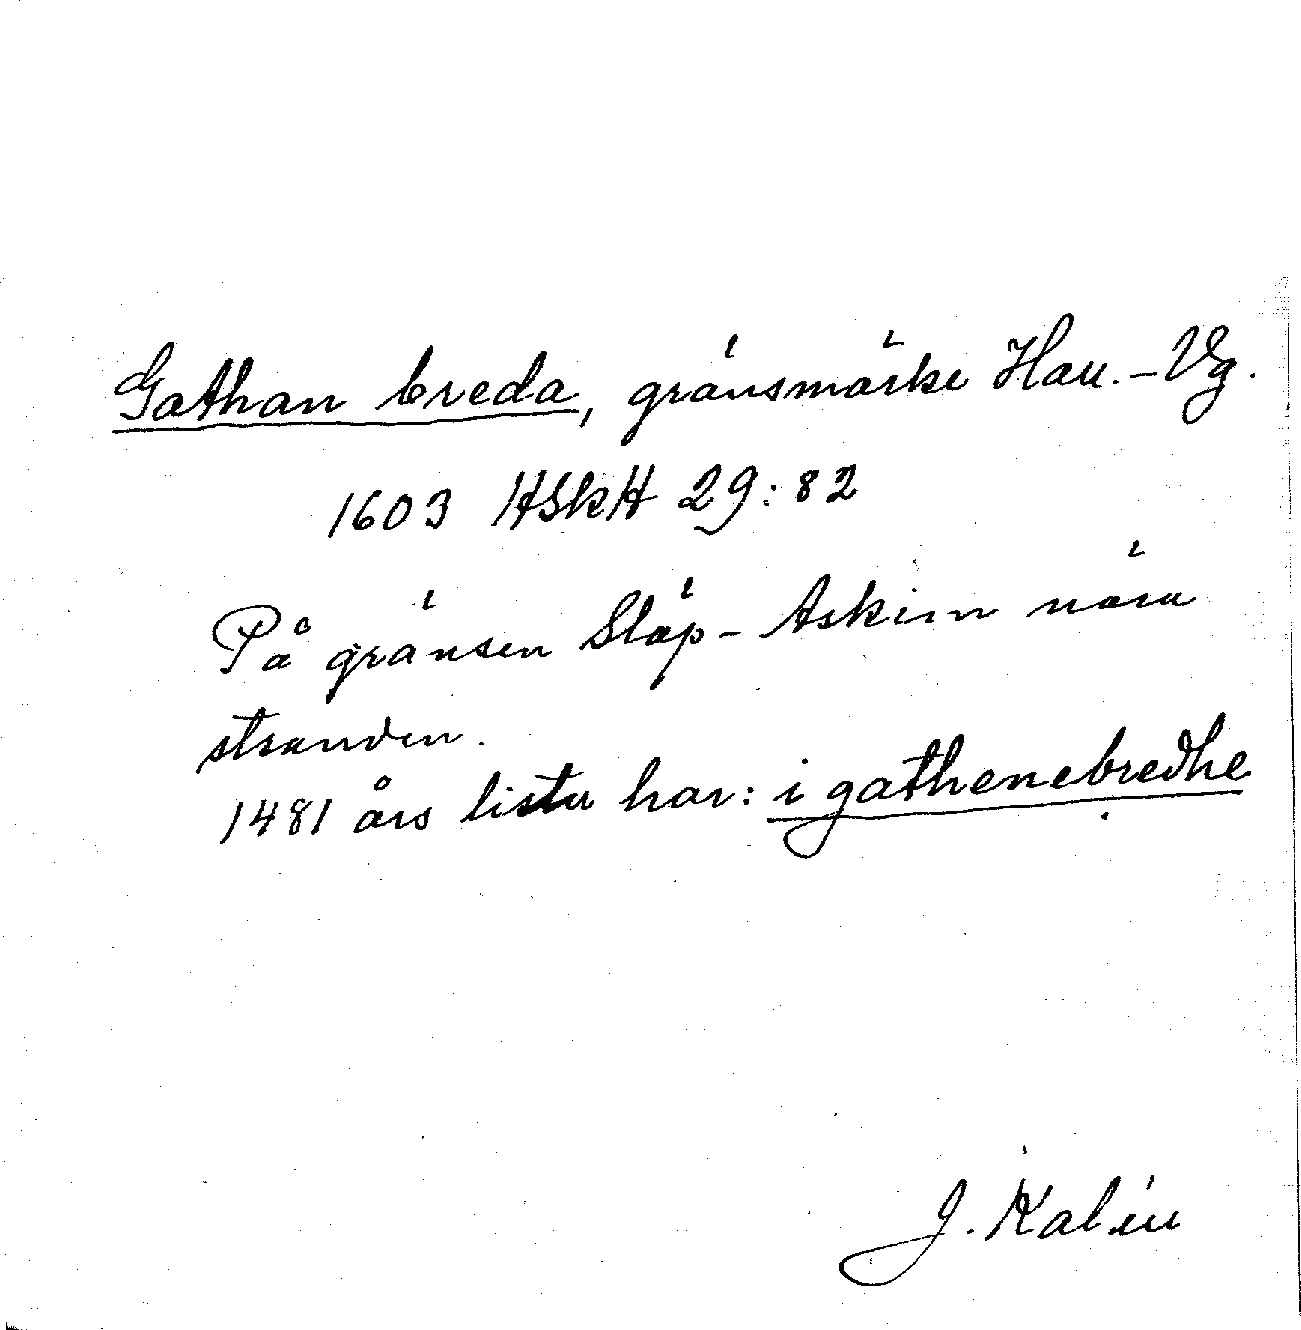 Gathan breda, gränsmärke Hall.-Vg.
1603 HSkH 29:82
På gränsen Släp-Askim nära
stranden.
1481 års lista har: i gathenebredhe
J. Kalén